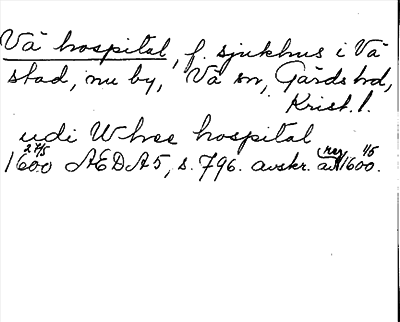 Vä hospital, f. sjukhus i Vä
stad, nu by, Vä sn, Gärds hd,
Krist. l.
udi Whæ hospital
1600 27/5 ÆDA 5, s. 796. avskr. av reg 1600 1/5.